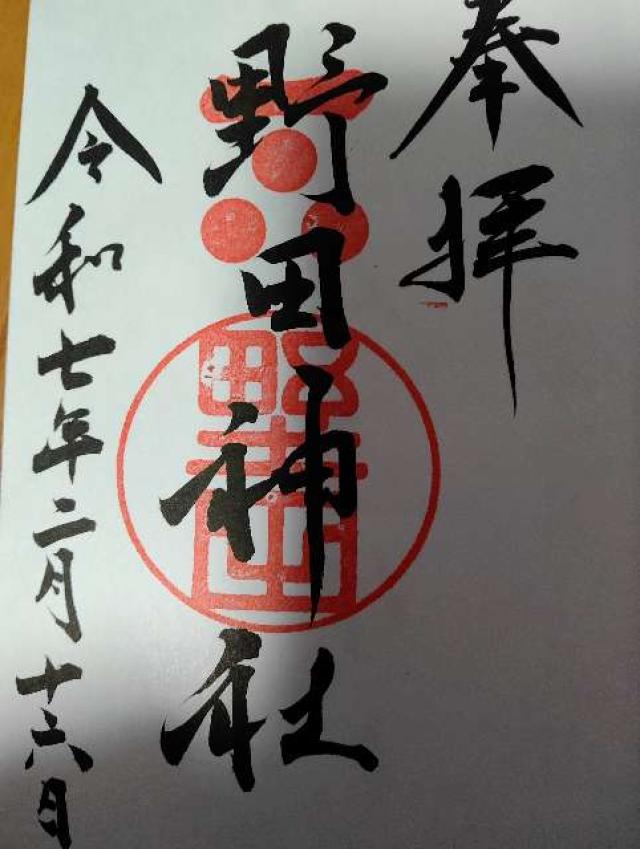 奉拝
野田神社
令和七年二月十六日